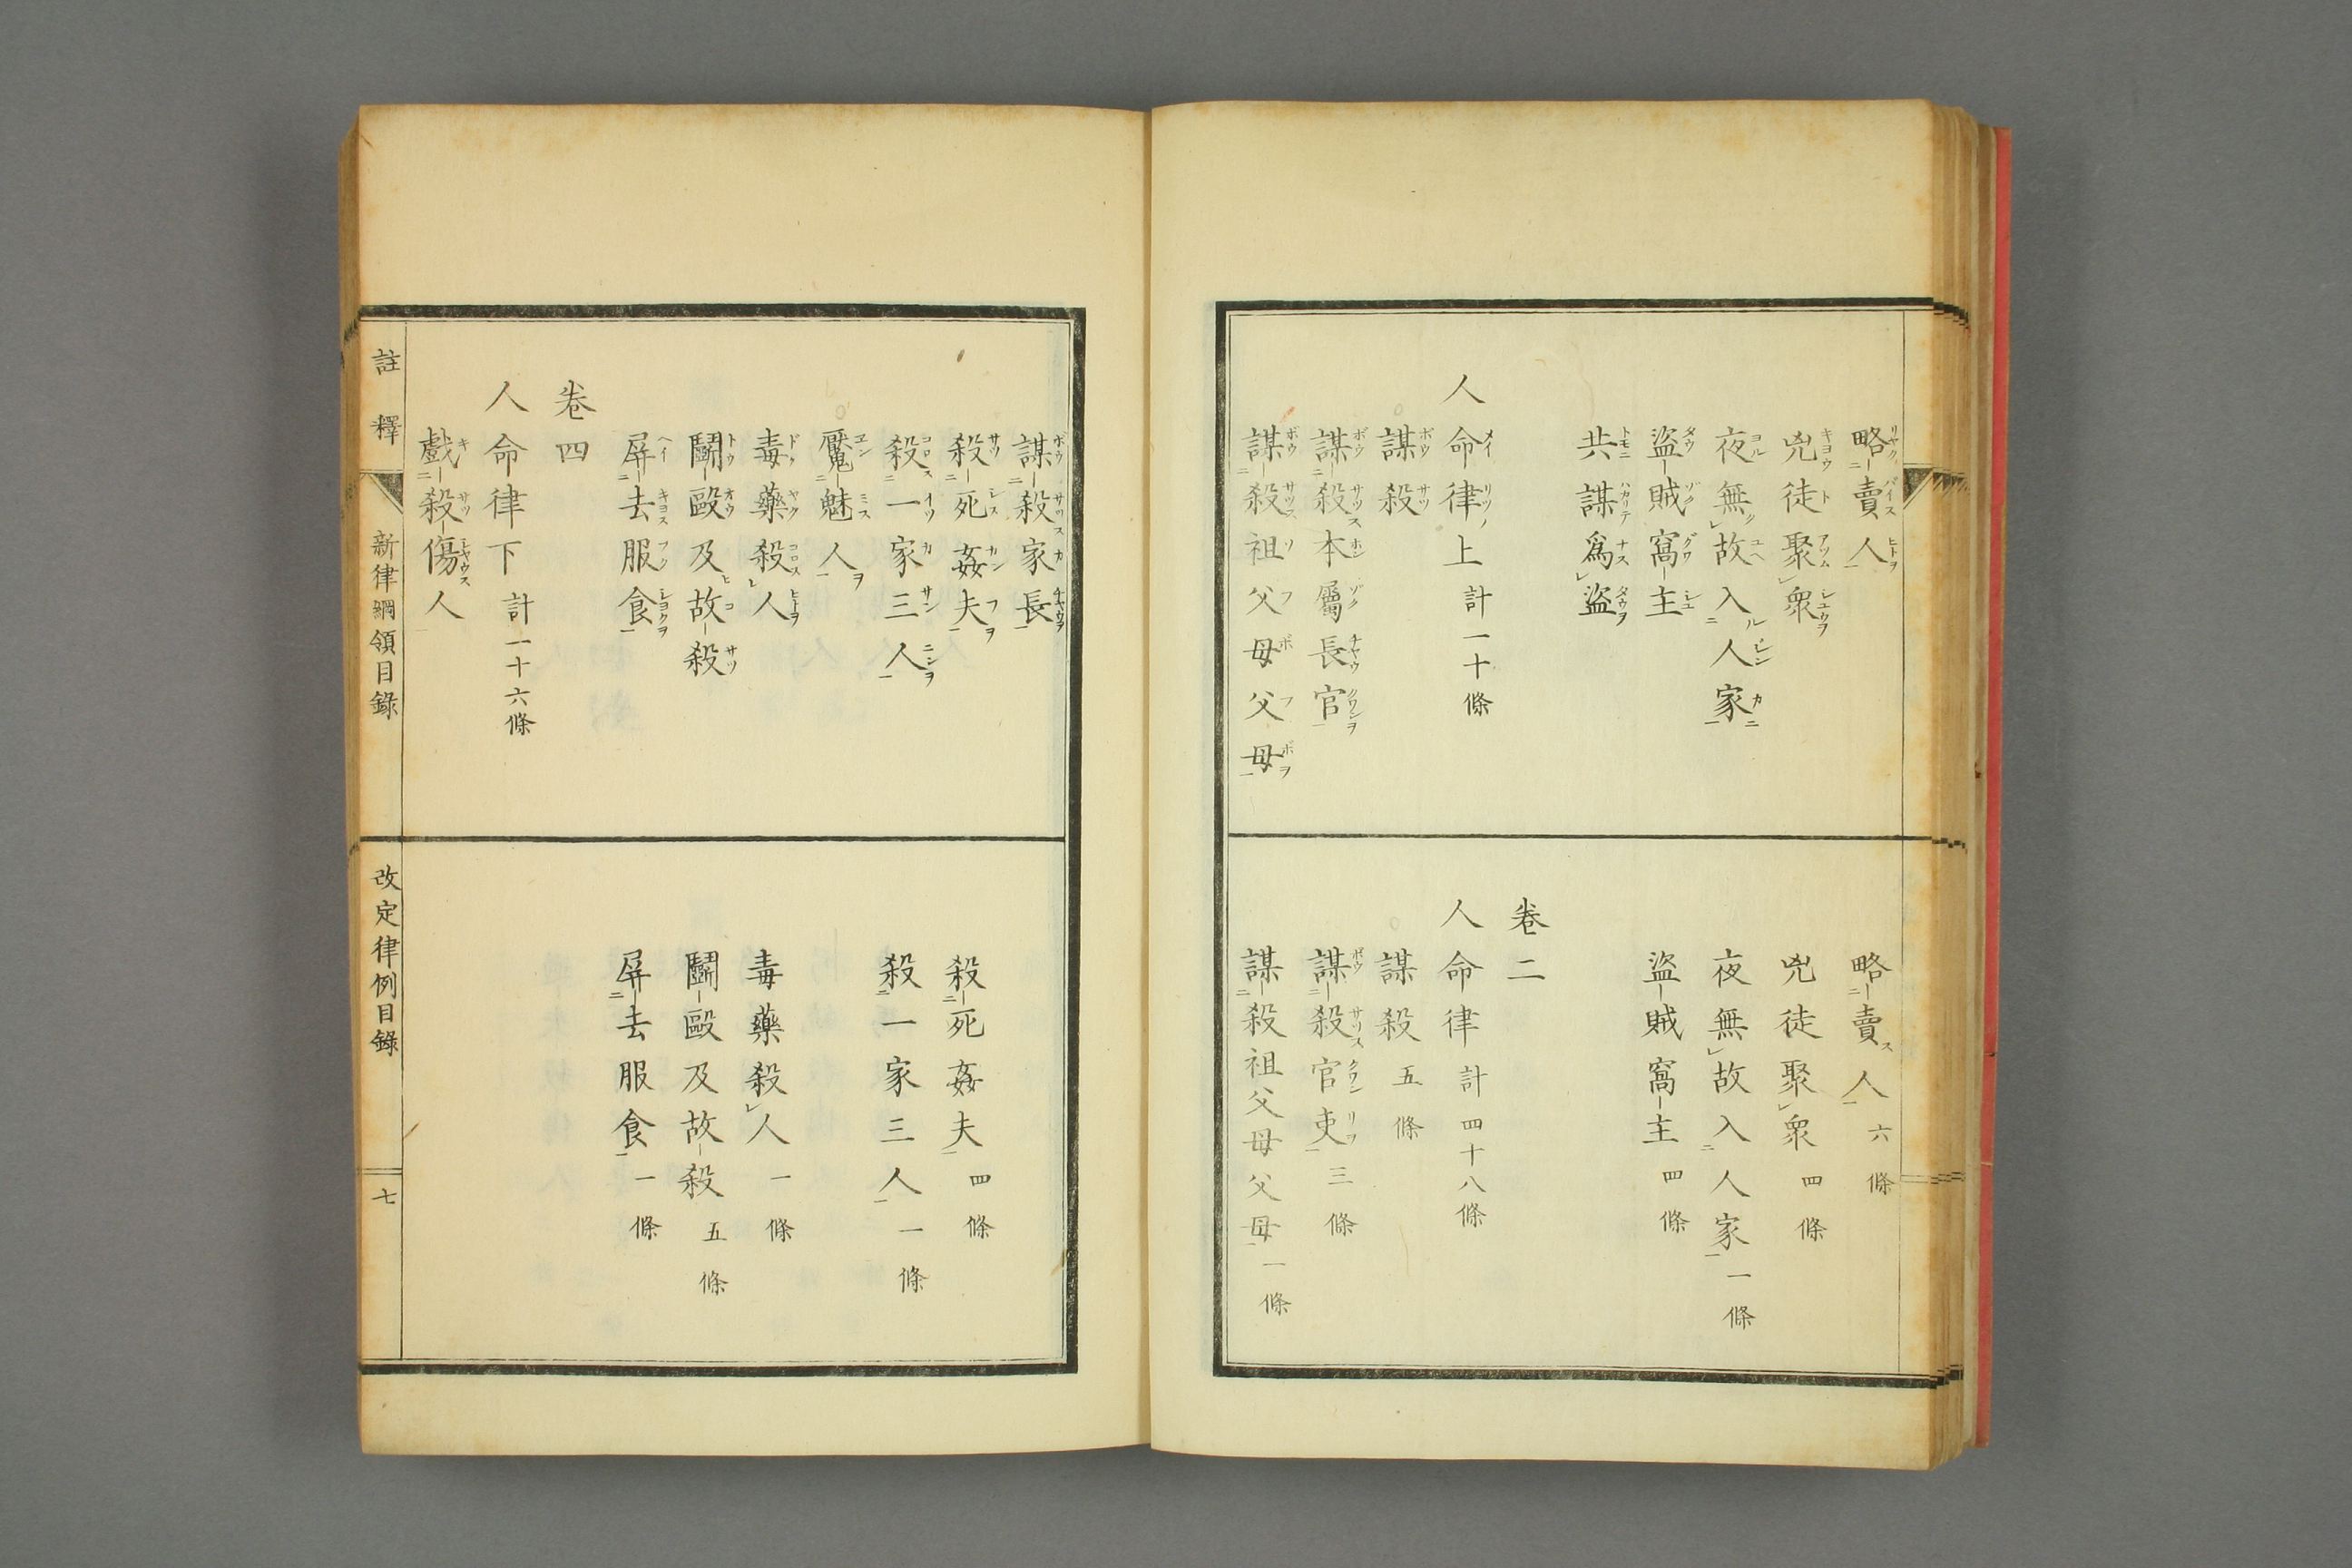 略賣人
兇徒聚衆
夜無故入人家
盜賊窩主
共謀爲盜
人命律上 計一十條
謀殺
謀殺本屬長官
謀殺祖父母父母
略賣人 六條
兇徒聚衆 四條
夜無故入人家 一條
盜賊窩主 四條
卷二
人命律 計四十八條
謀殺 五條
謀殺官吏 三條
謀殺祖父母父母 一條
謀殺家長
殺死姦夫
殺一家三人
魘魅人
毒藥殺人
鬭毆及故殺
屏去服食
卷四
人命律下 計一十六條
戲殺傷人
殺死姦夫 四條
殺一家三人 一條
毒藥殺人 一條
鬭毆及故殺 五條
屏去服食 一條
註釋 新律綱領目錄 改定律例目錄 七